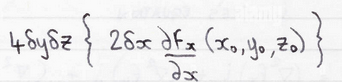 4δyδz { 2δx ∂Fx/∂x (x₀, y₀, z₀) }